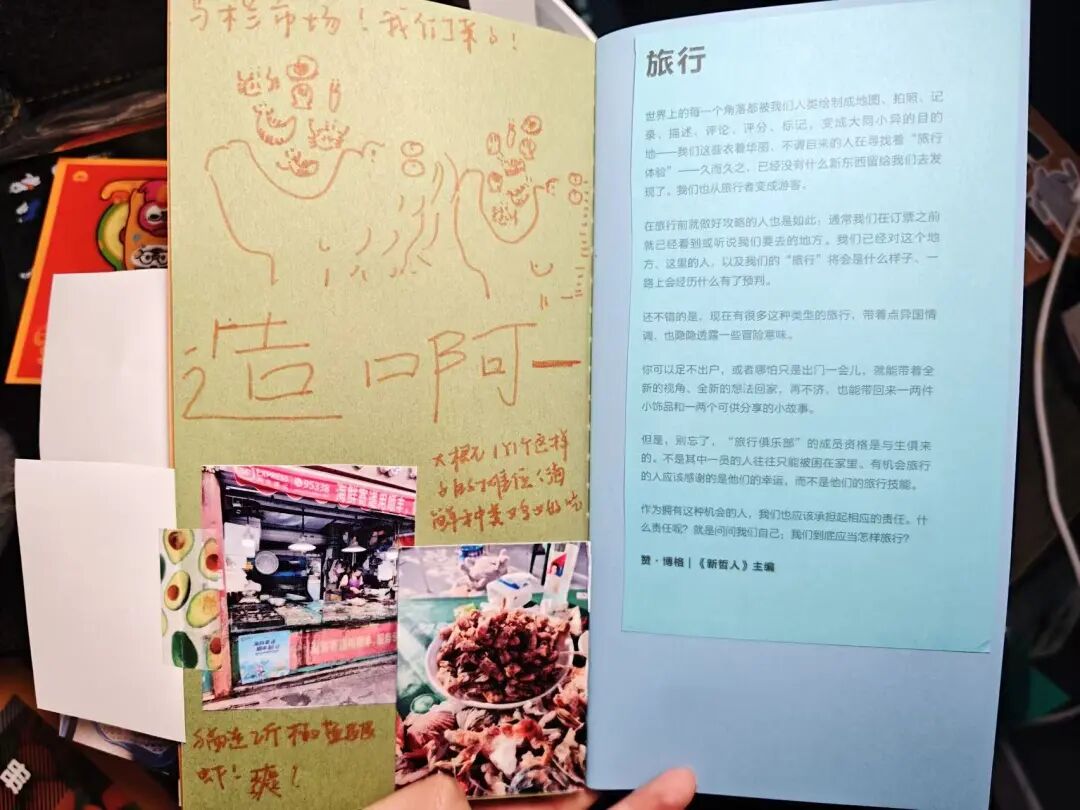 马栏市场！我们来了！
造 啊一
旅行
世界上的每一个角落都被我们人类绘制成地图、拍照、记
录、描述、评论、评分、标记，变成大同小异的目的
地——我们这些衣着华丽、不请自来的人在寻找着“旅行
体验”——久而久之，已经没有什么新东西留给我们去发
现了。我们也从旅行者变成游客。
在旅行前就做好攻略的人也是如此，通常我们在订票之前
就已经看到或听说我们要去的地方。我们已经对这个地
方、这里的人，以及我们的“旅行”将会是什么样子、一
路上会经历什么有了预判。
还不错的是，现在有很多这种类型的旅行，带着点异国情
调，也隐隐透露一些冒险意味。
你可以足不出户，或者哪怕只是出门一会儿，就能带着全
新的视角、全新的想法回家，再不济，也能带回来一两件
小饰品和一两个可供分享的小故事。
但是，别忘了，“旅行俱乐部”的成员资格是与生俱来
的。不是其中一员的人往往只能被困在家里。有机会旅行
的人应该感谢的是他们的幸运，而不是他们的旅行技能。
作为拥有这种机会的人，我们也应该承担起相应的责任。什
么责任呢？就是问问我们自己：我们到底应当怎样旅行？
赞·博格｜《新哲人》主编
95338
海鲜寄递用顺丰
虾！爽！